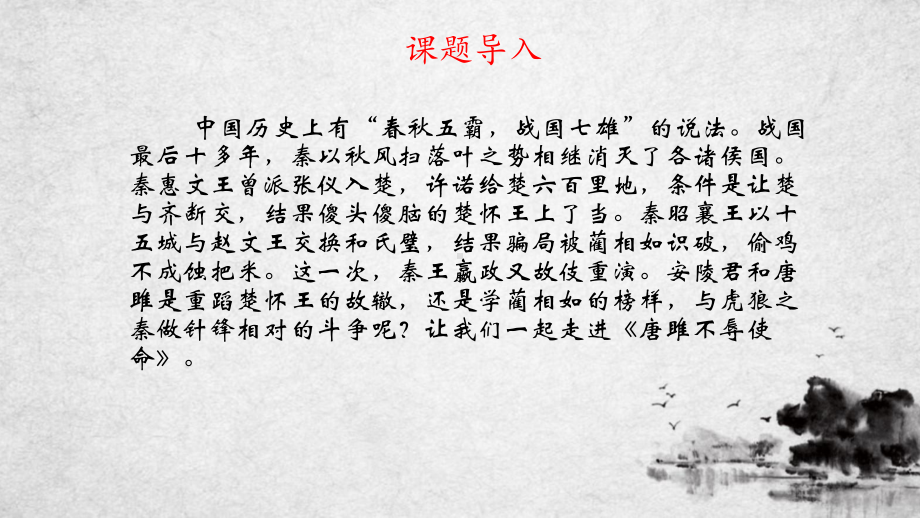 课题导入
中国历史上有“春秋五霸，战国七雄”的说法。战国
最后十多年，秦以秋风扫落叶之势相继消灭了各诸侯国。
秦惠文王曾派张仪入楚，许诺给楚六百里地，条件是让楚
与齐断交，结果傻头傻脑的楚怀王上了当。秦昭襄王以十
五城与赵文王交换和氏璧，结果骗局被蔺相如识破，偷鸡
不成蚀把米。这一次，秦王嬴政又故伎重演。安陵君和唐
雎是重蹈楚怀王的故辙，还是学蔺相如的榜样，与虎狼之
秦做针锋相对的斗争呢？让我们一起走进《唐雎不辱使
命》。